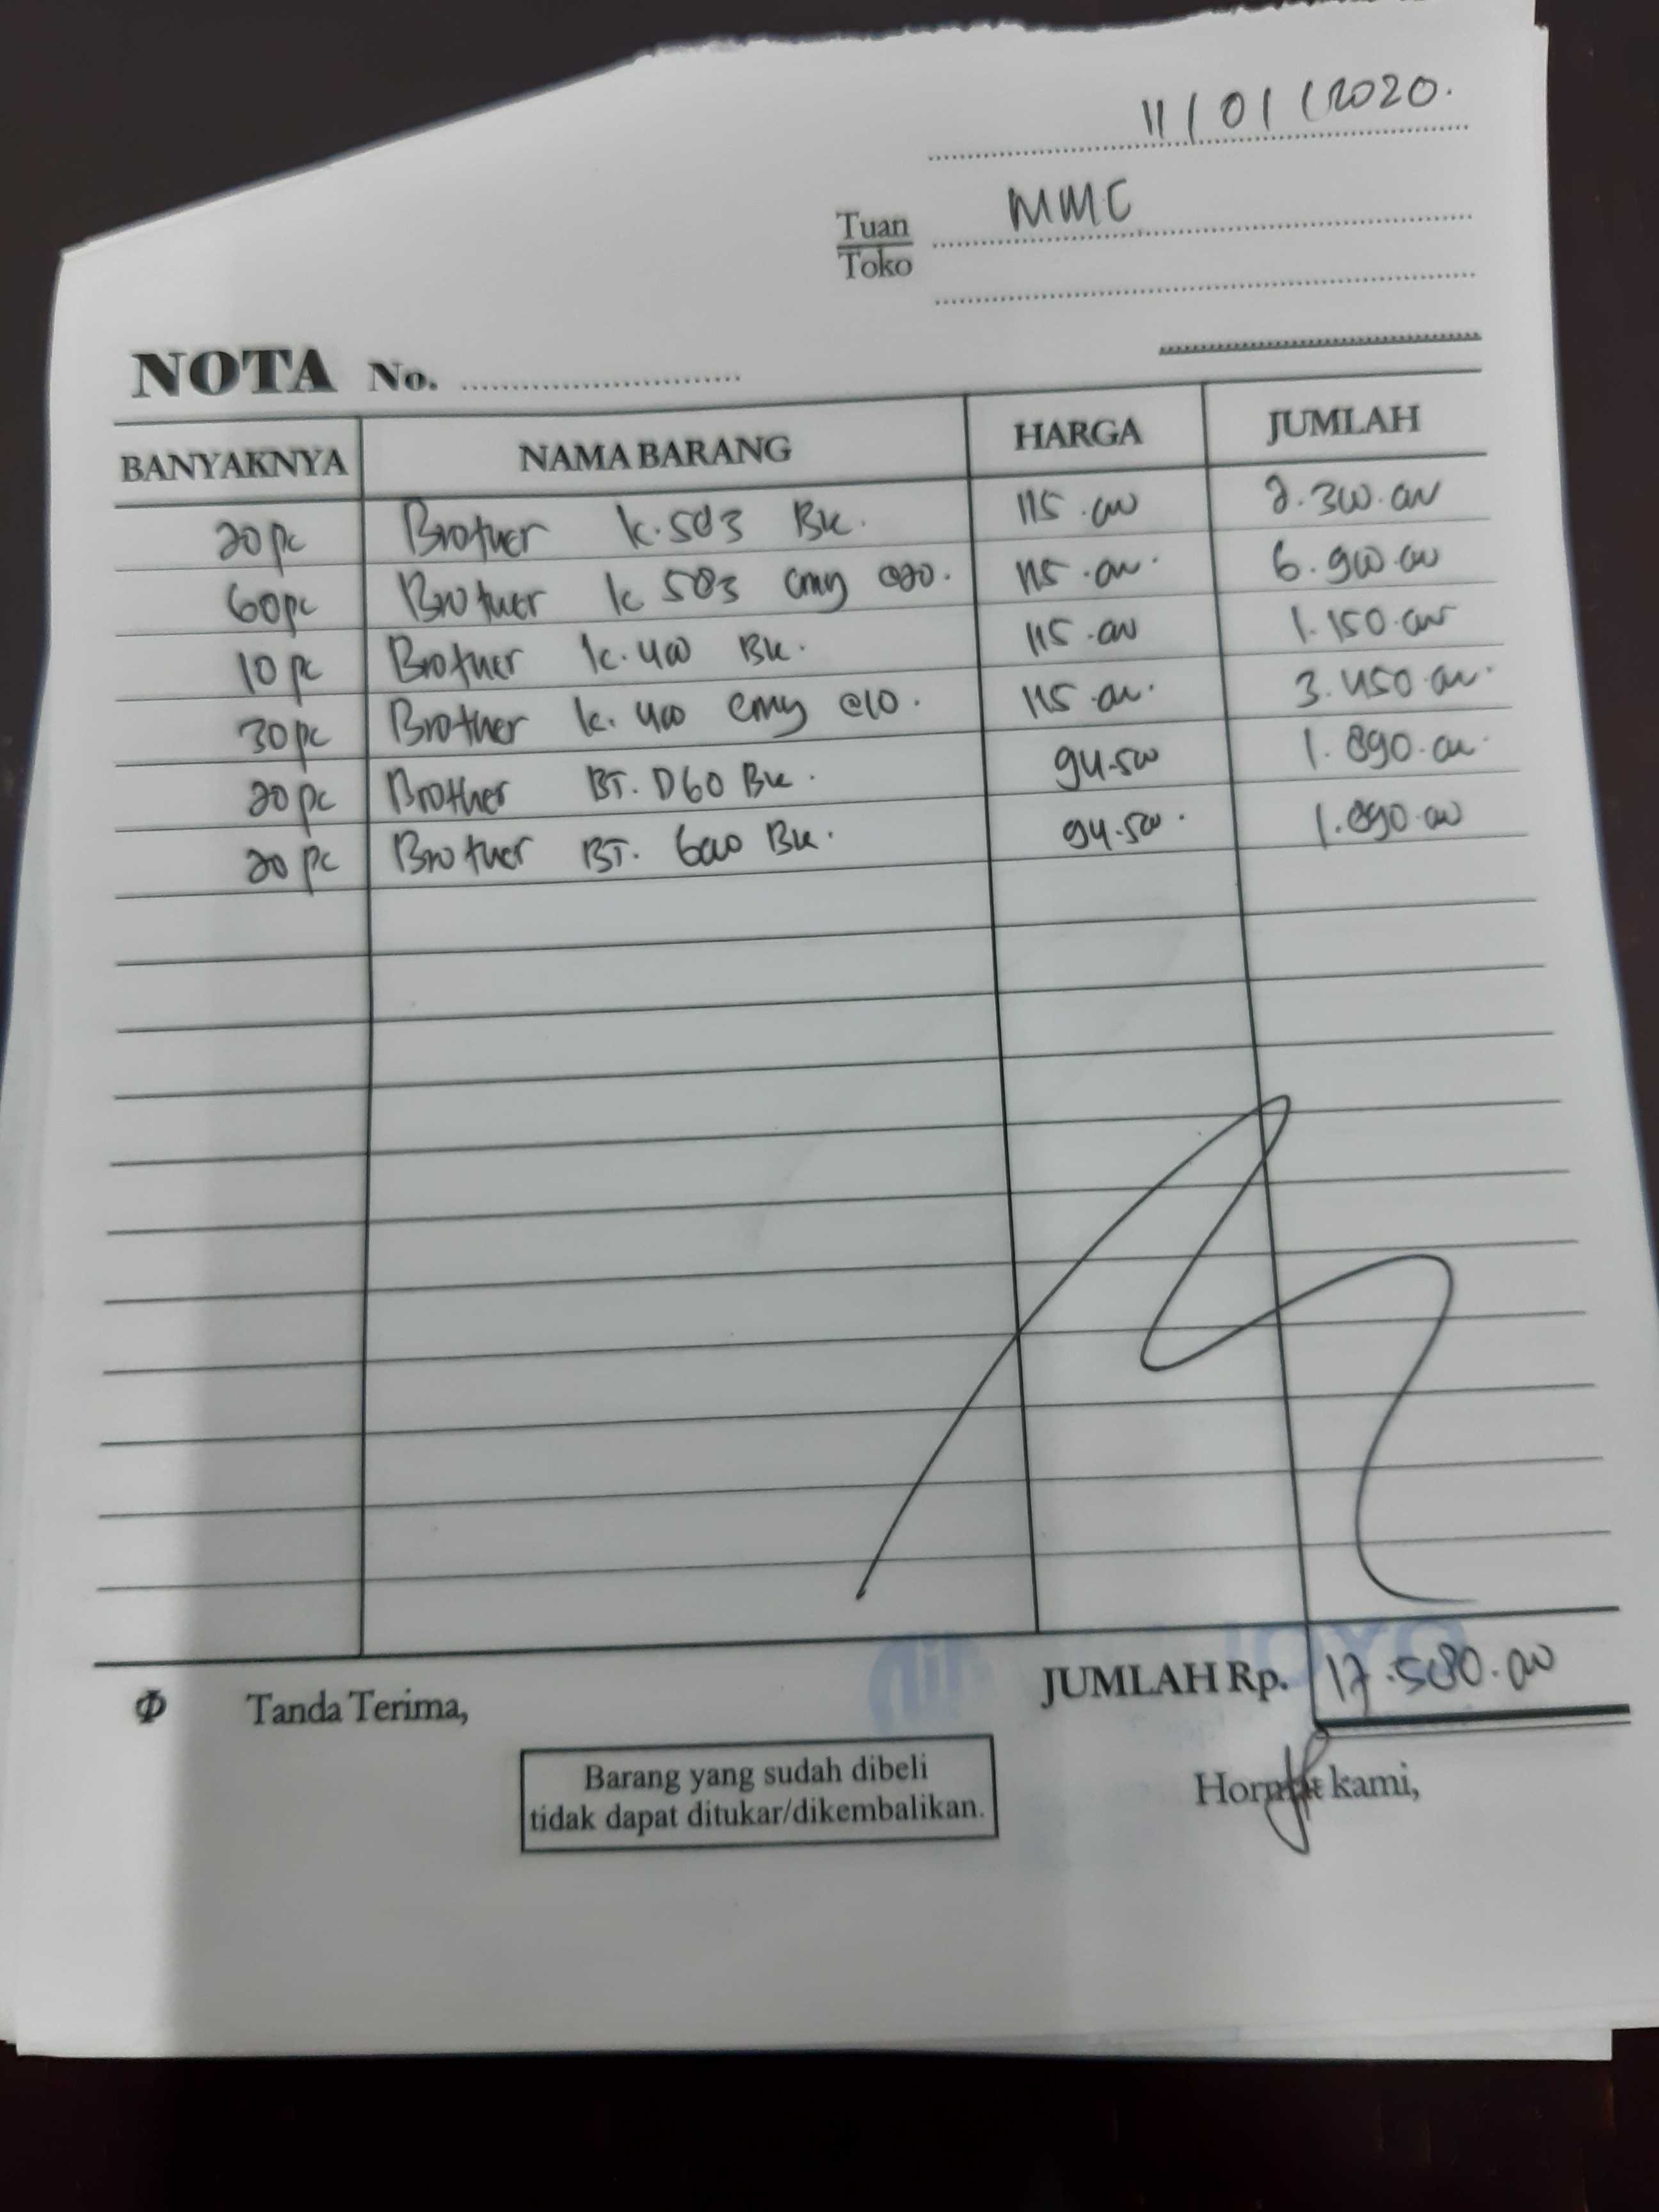 11/01/2020.
Tuan
Toko
MMC
NOTA No.
BANYAKNYA NAMA BARANG HARGA JUMLAH
20 pc Brother k.583 Bk. 115.000 2.300.000
60 pc Brother k 583 cmy @20. 115.000. 6.900.000
10 pc Brother k.400 Bk. 115.000 1.150.000
30 pc Brother k. 400 cmy @10. 115.000. 3.450.000.
20 pc Brother BT. D60 Bk. 94.500 1.890.000.
20 pc Brother BT. 6000 Bk. 94.500. 1.890.000
JUMLAH Rp. 17.580.000
Φ Tanda Terima,
Barang yang sudah dibeli
tidak dapat ditukar/dikembalikan.
Hormat kami,